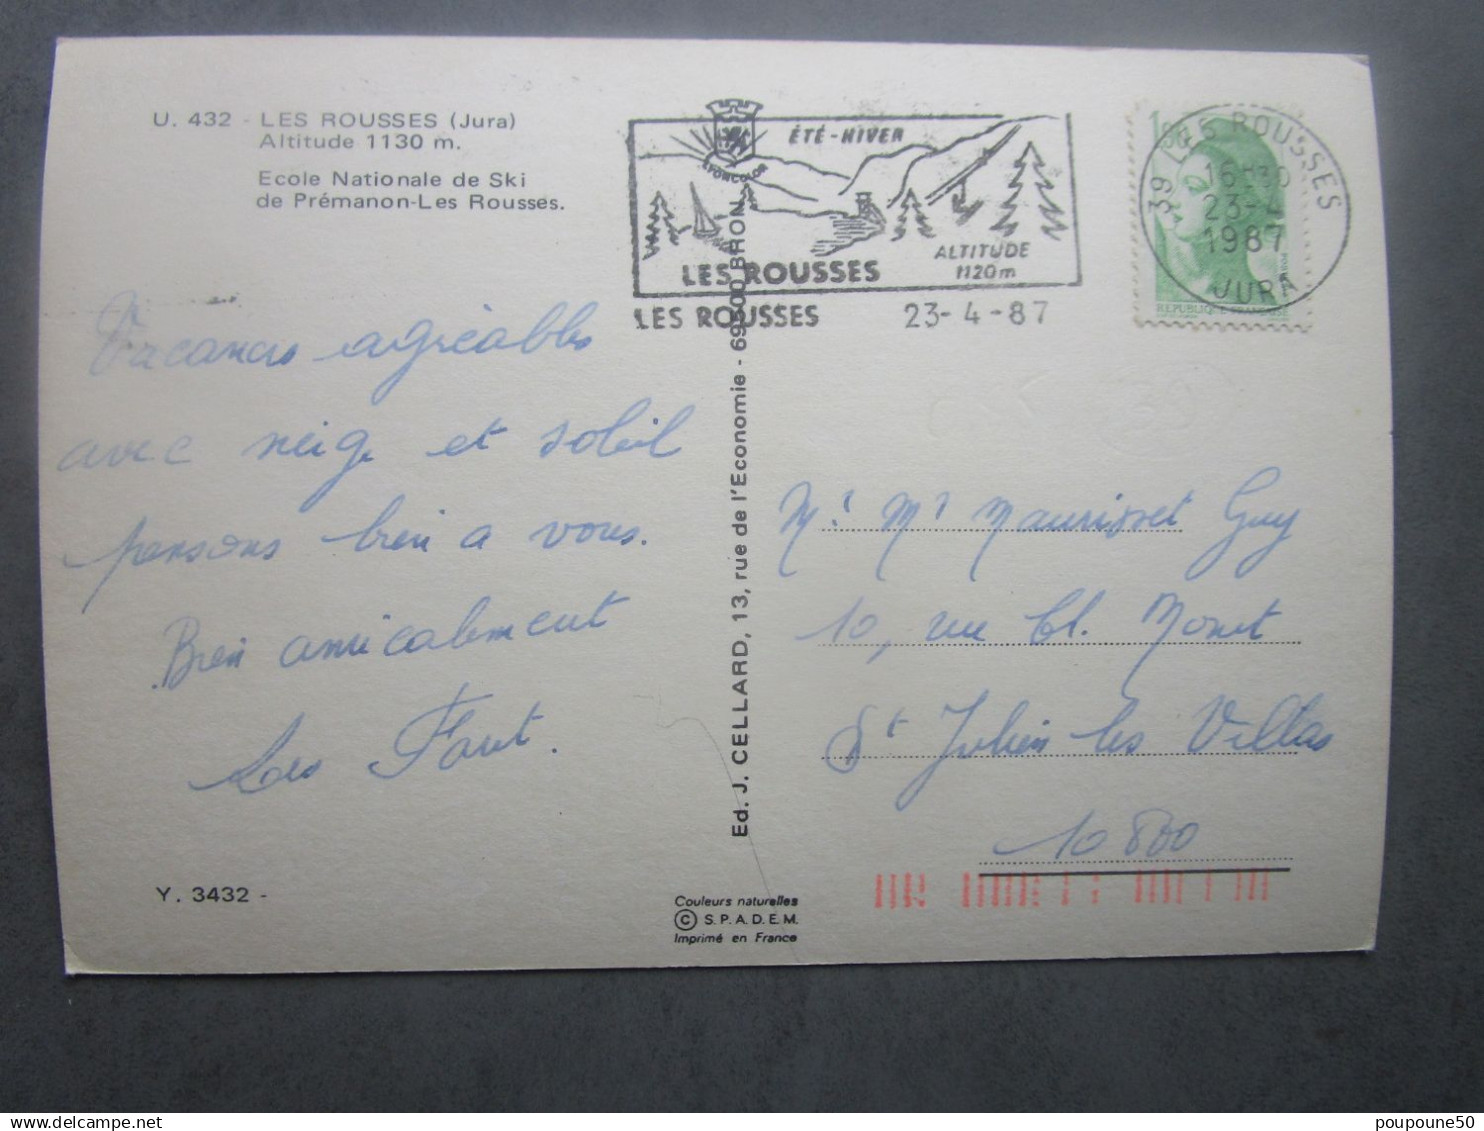 U. 432 - LES ROUSSES (Jura)
Altitude 1130 m.
Ecole Nationale de Ski
de Prémanon-Les Rousses.
Vacances agréables
avec neige et soleil
pensons bien a vous.
Bien amicalement
Les Faut.
Y. 3432 -
LYONCOLOR
ÉTÉ-HIVER
ALTITUDE
1120m
LES ROUSSES
LES ROUSSES 23-4-87
39 LES ROUSSES
16H30
23-4
1987
JURA
REPUBLIQUE FRANCAISE
Ed. J. CELLARD, 13, rue de l'Economie - 69500 BRON
Couleurs naturelles
© S.P.A.D.E.M.
Imprimé en France
Guy
10, rue Cl. Monet
St Julien les Villas
10 800
poupoune50